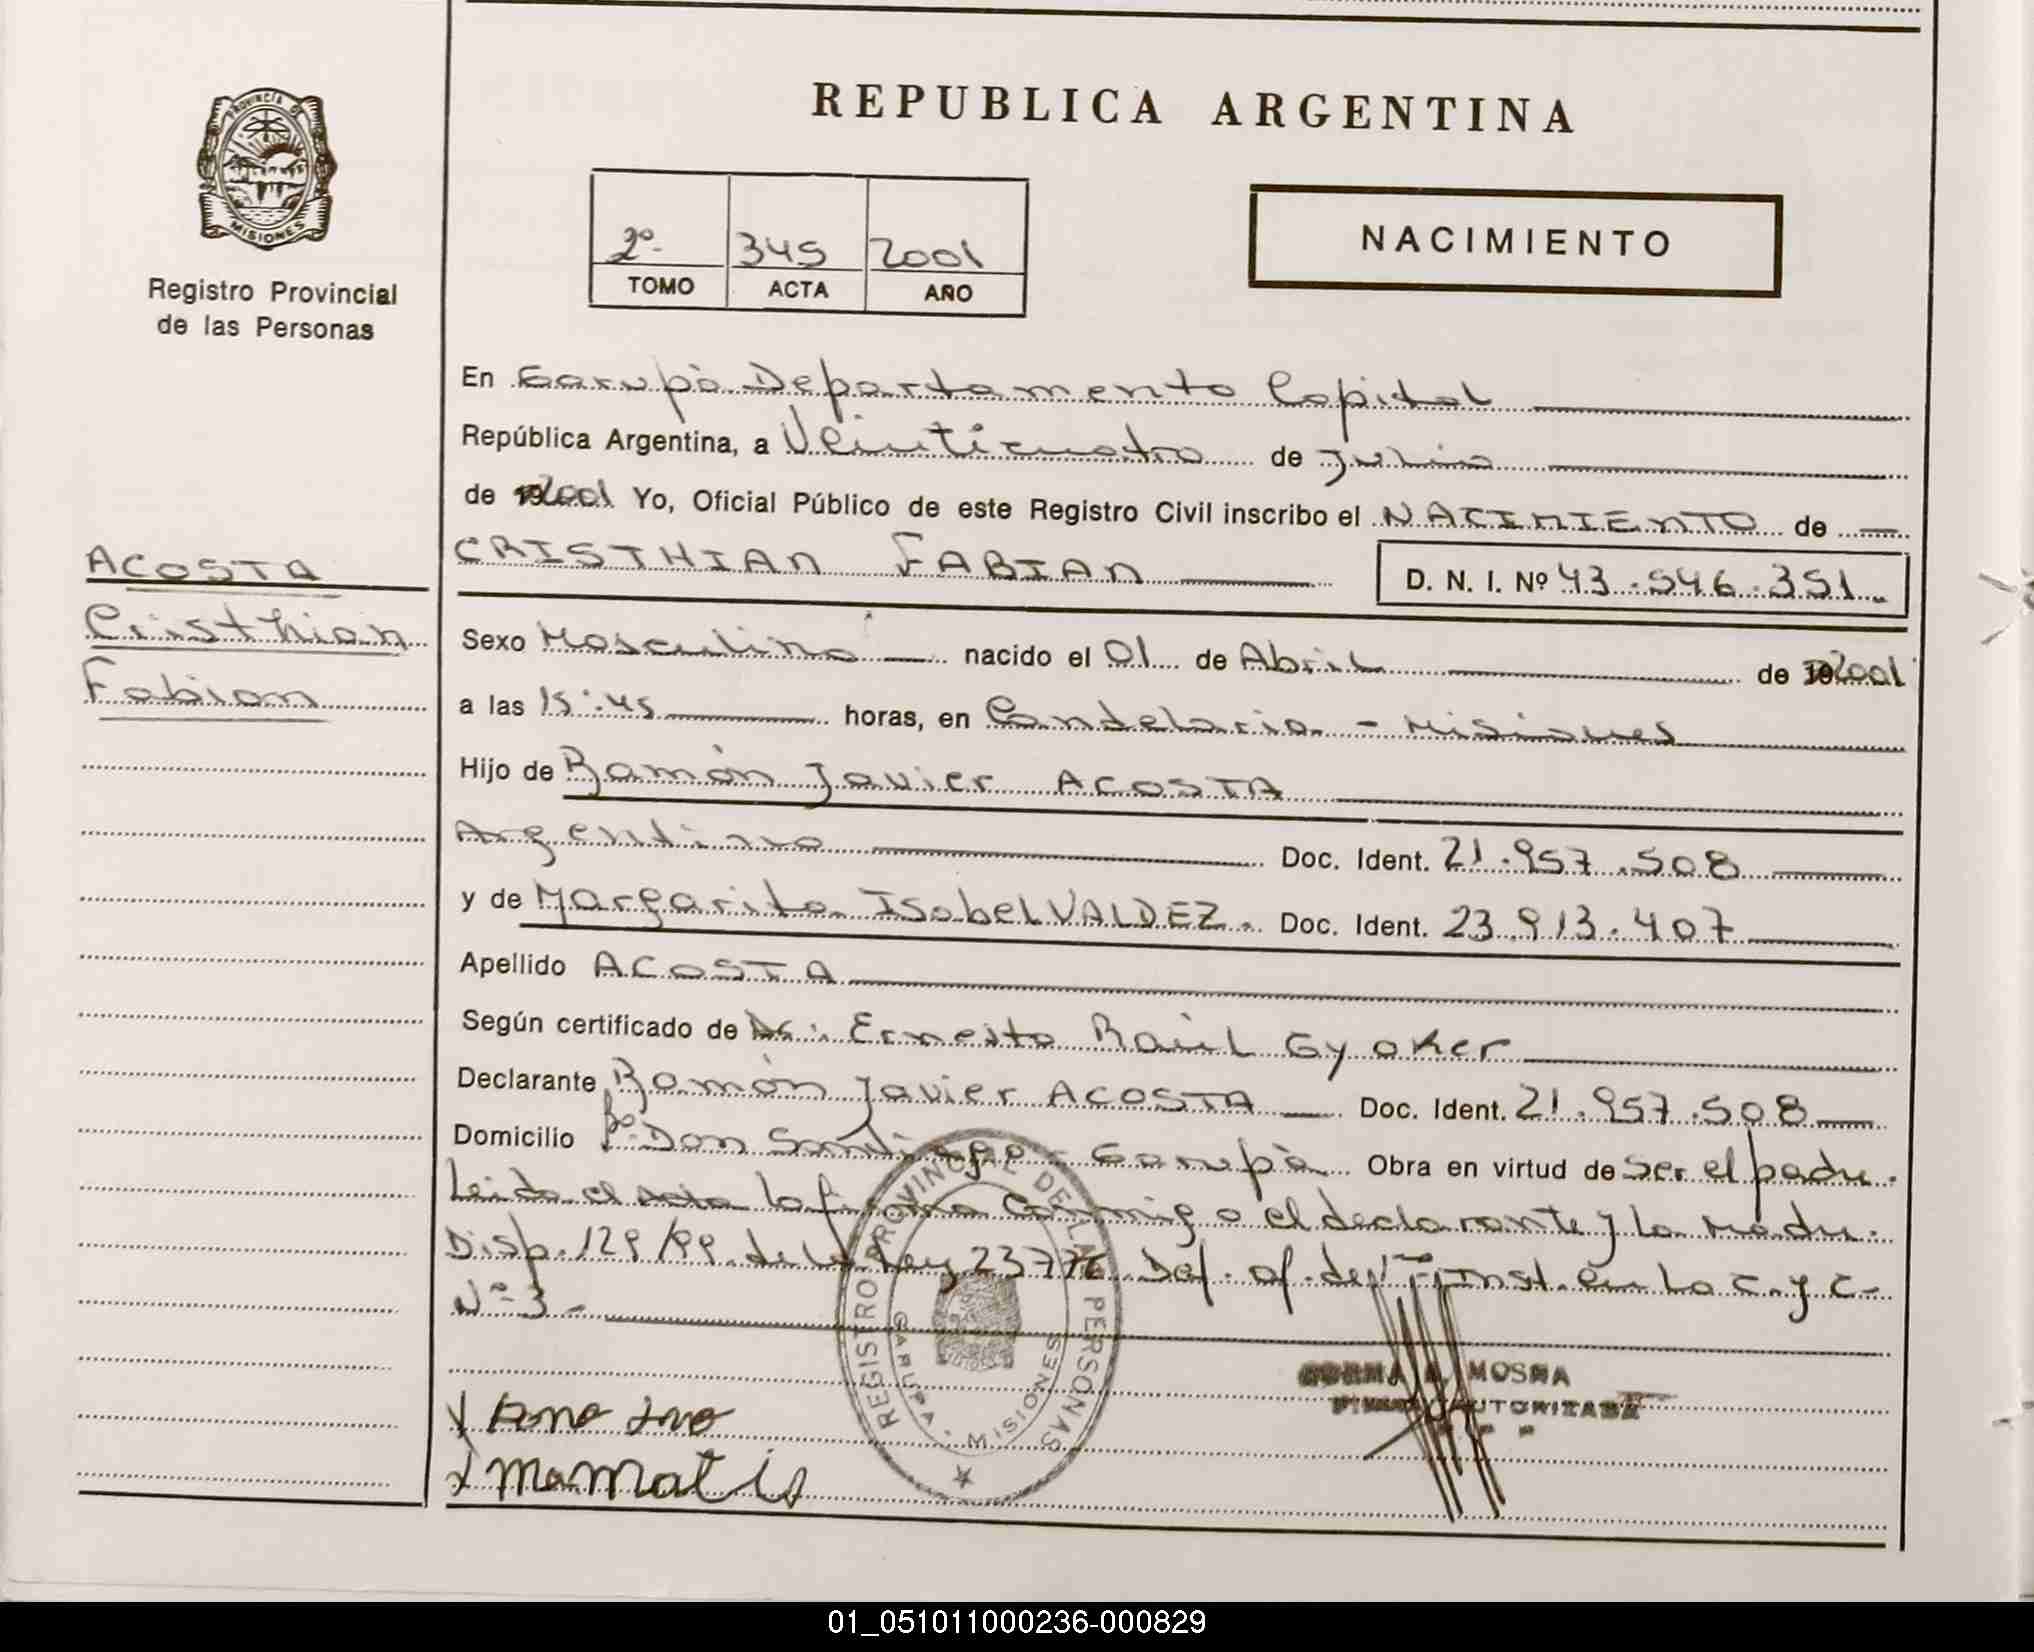 PROVINCIA DE
MISIONES
Registro Provincial
de las Personas
ACOSTA
Cristhian
Fabian
REPUBLICA ARGENTINA
2º 345 2001
TOMO ACTA AÑO
NACIMIENTO
En Garupà Departamento Capital
República Argentina, a Veinticuatro de Julio
de 192001 Yo, Oficial Público de este Registro Civil inscribo el NACIMIENTO de
CRISTHIAN FABIAN D. N. I. Nº 43.546.351
Sexo Masculino nacido el 01 de Abril de 192001
a las 15:45 horas, en Candelaria - Misiones
Hijo de Ramón Javier ACOSTA
Argentino Doc. Ident. 21.957.508
y de Margarita Isabel VALDEZ. Doc. Ident. 23.913.407
Apellido ACOSTA
Según certificado de Dr: Ernesto Raúl Gyoker
Declarante Ramón Javier ACOSTA Doc. Ident. 21.957.508
Domicilio Bº Don Santiago - Garupà Obra en virtud de ser el padre.
Leida el acta la firma Conmigo el declarante y la Madre.
Disp. 129/99 de la Ley 23776 Def. of. de 1ª Inst. en lo C. y C.
Nº 3-
REGISTRO PROVINCIAL DE LAS PERSONAS
GARUPA - MISIONES
MOSNA
AUTORIZADA
01_051011000236-000829